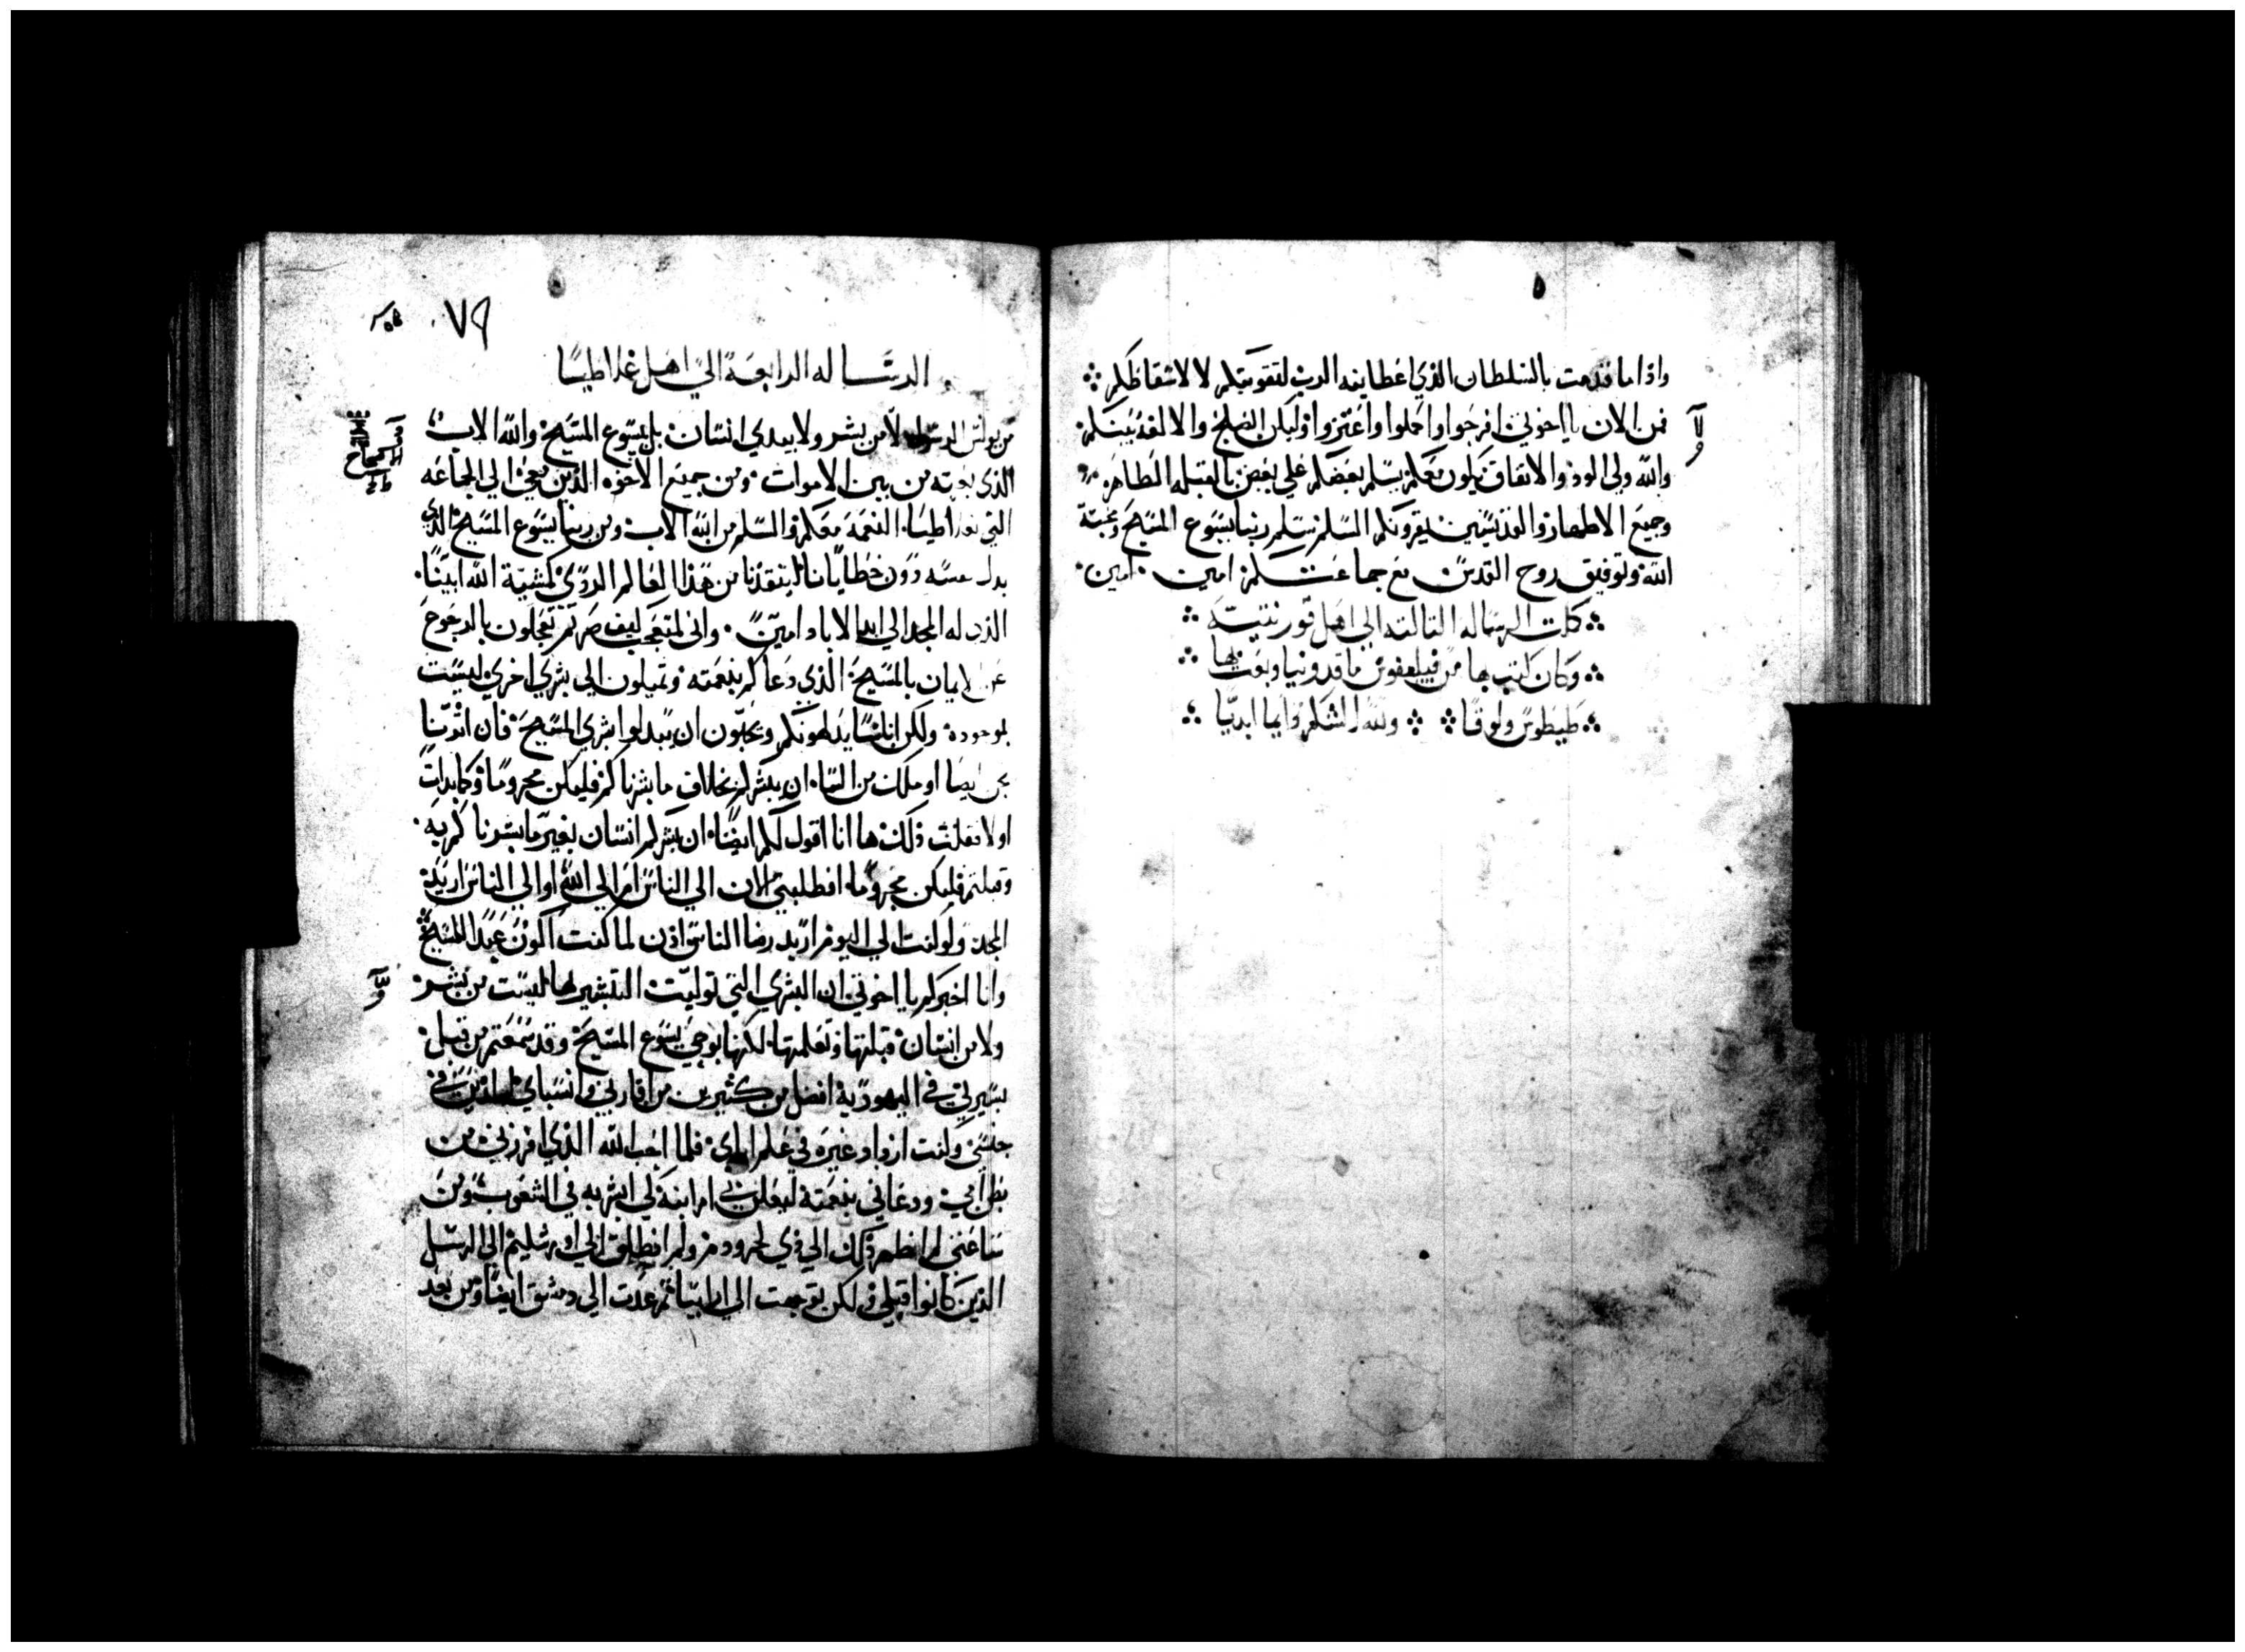 واذا ما قدمت بالسلطان الذي اعطانيه الرب لتقويتكم لا لاسقاطكم
فمن الان يا اخوتي افرحوا واكملوا واعتزوا وليكن الصلح والالفه بينكم
والله ولي الود والاتفاق يكون معكم يسلم بعضكم علي بعض بالقبله الطاهره
وجميع الاطهار والقديسين يقرونكم السلم سلم ربنا يسوع المسيح ومحبة
الله وتوفيق روح القدس مع جماعتكم امين امين
كملت الرساله الثالثه الي اهل قورنتيه
وكان كتب بها من فيلبفوس ماقدونيا وبعث بها
طيطوس ولوقا ولله الشكر دايما ابديا
٧٩
الرساله الرابعة الي اهل غلاطيا
من بولس الرسول لا من بشر ولا بيدي انسان بل بيسوع المسيح والله الاب
الذي بعثه من بين الاموات ومن جميع الاخوه الذين معي الي الجماعه
التي بغلاطيا النعمة معكم والسلم من الله الاب ومن ربنا يسوع المسيح الذي
بدل نفسه دون خطايانا لينقذنا من هذا العالم الردي كمشية الله ابينا
الذي له المجد الي ابد الاباد امين واني لمتعجب كيف صرتم تعجلون بالرجوع
عن الايمان بالمسيح الذي دعاكم بنعمته وتميلون الي بشري اخري ليست
بموجودة ولكن اناسا يدلهونكم ويحبون ان يبدلوا بشري المسيح فان اتنا
نحن ايضا او ملك من السما ان يبشركم بخلاف ما بشرناكم فليكن محروما وكما بدات
اولا فقلت ذلك ها انا اقول لكم ايضا ان بشركم انسان بغير ما بشرناكم به
وقبلتم فليكن محروما افطلبتي الان الي الناس ام الي الله او الي الناس اريد
المجد ولو كنت الي اليوم اريد رضا الناس اذن لما كنت اكون عبدا للمسيح
وانا اخبركم يا اخوتي ان البشري التي توليت التبشير بها ليست من بشر
ولا من انسان قبلتها وتعلمتها لكنها بوحي يسوع المسيح وقد سمعتم من قبل
بسيرتي في اليهودية افضل من كثيرين من اقاربي وانسباي الذين في
جنسي وكنت ازداد غيره في علم اباي فلما احب الله الذي افرزني من
بطن امي ودعاني بنعمته ليعلن بي امر ابنه كي ابشر به في الشعوب ومن
ساعتي لم اظهر ذلك الي ذي لحم ودم ولم انطلق الي اورشليم الي الرسل
الذين كانوا قبلي ولكن توجهت الي ارابيا ثم عدت الي دمشق ايضا ومن بعد